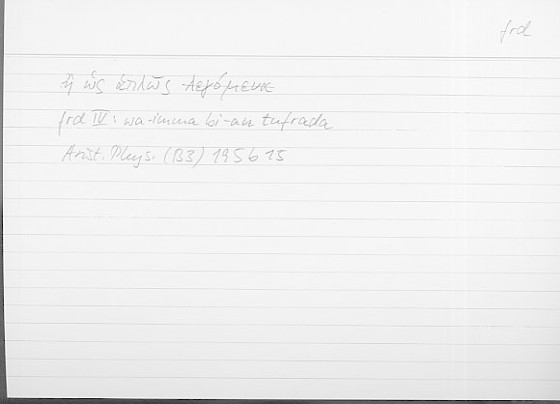 frd
ἢ ὡς ἁπλῶς λεγόμενα
frd IV: wa-imma bi-an tufrada
Arist. Phys. (B3) 195b15